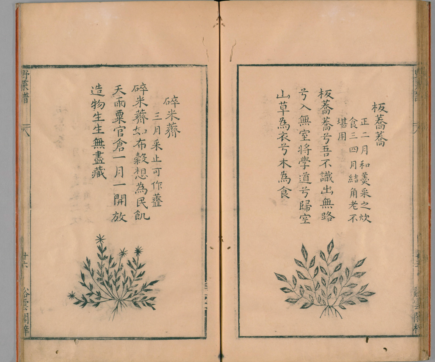 板蕎蕎
正二月和羹采之炊
食三四月結角老不
堪用
板蕎蕎兮吾不識出無路
兮入無室將學道兮歸空
山草為衣兮木為食
碎米薺
三月采止可作虀
碎米薺如布穀想為民飢
天雨粟官倉一月一開放
造物生生無盡藏
野菜譜